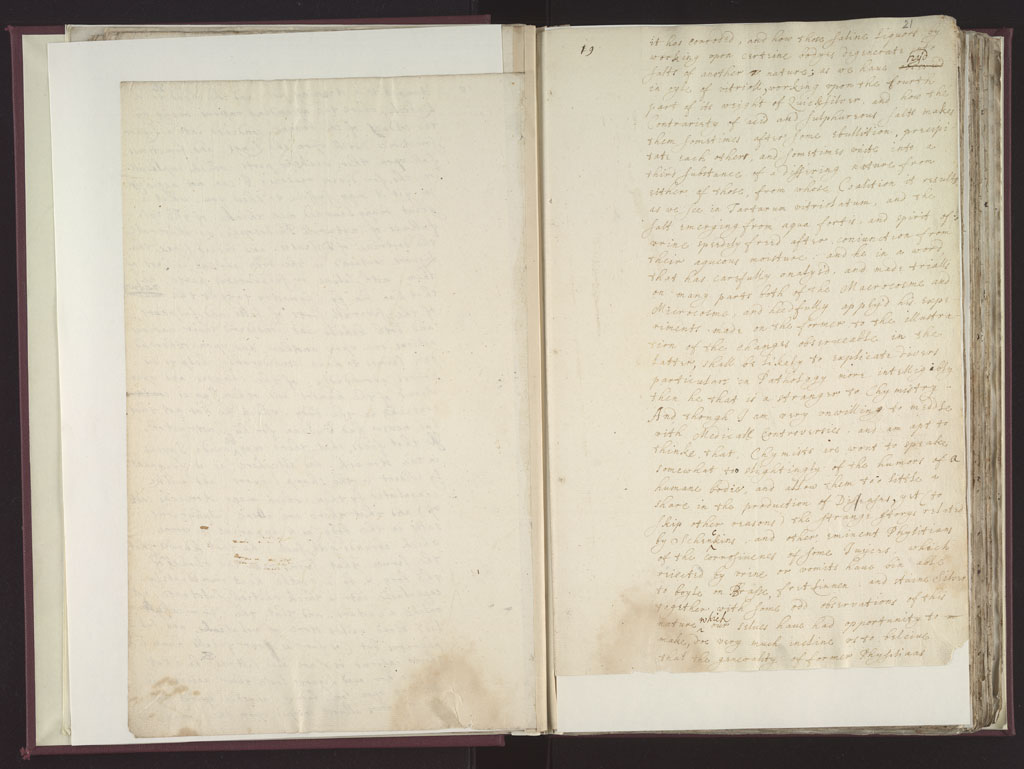 21
19
it has corroded, and how those saline Liquors by
working upon certaine bodys degenerate into
salts of another nature; as we have
in oyle of vitrioll, working upon the fourth
part of its weight of Quicksilver, and how the
Contrariety of acid and sulphureous salts makes
them sometimes after some ebullition, precipi-
tate each other, and sometimes unite into a
third substance of a differing nature from
either of those, from whose Coalition it results
as we see in Tartarum vitriolatum, and the
salt emerging from aqua fortis, and spirit of
urine speedily freed after conjunction from
their aqueous moisture. and he in a word
that has carefully analys'd, and made trialls
on many parts both of the Macrocosme and
Microcosme, and heedfully apply'd his expe-
riments made on the former to the illustra-
tion of the changes observeable in the
latter, shall be likely to explicate divers
particulars in Pathology more intelligibly
then he that is a stranger to Chymistry
And though I am very unwilling to meddle
with Medicall Controversies, and am apt to
thinke, that Chymists are wont to speake
somewhat too slightingly of the humors of a
humane bodie, and allow them to little a
share in the production of Diseases, yet to
skip other reasons the strange storys related
by Schenkius, and other eminent Physitians
of the corrosivenes of some Juyces, which
rejected by urine or vomits have bin able
to boyle on Brasse, fret Linnen and staine Silver
together with some odd observations of this
nature which our selves have had opportunity to
make, doe very much incline us to beleive
that the generality of former Physitians